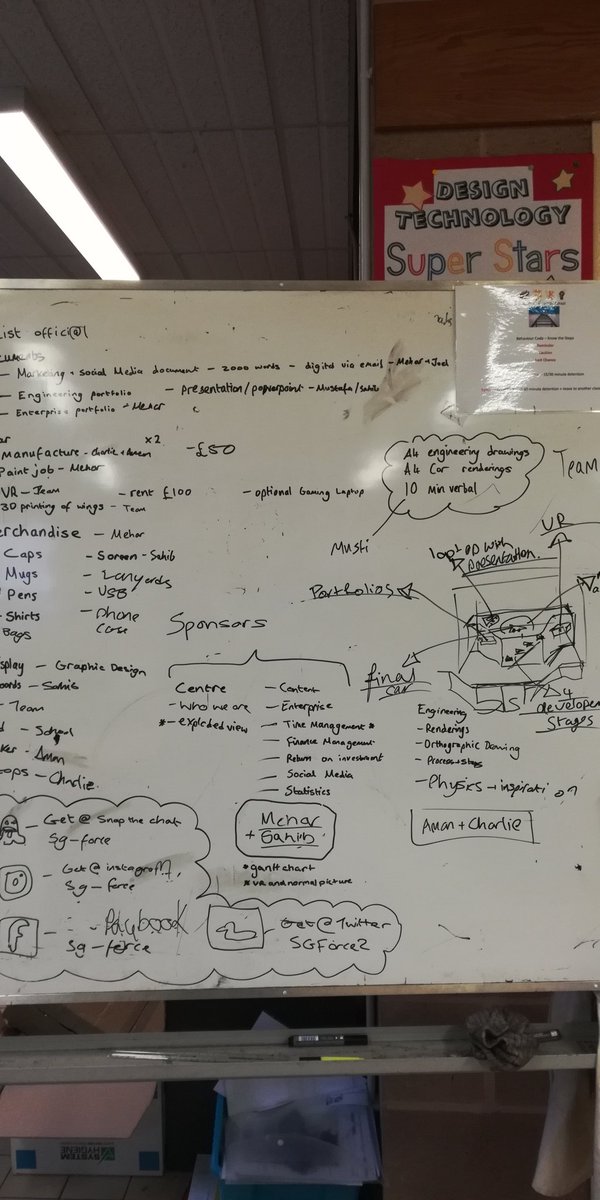 DESIGN
TECHNOLOGY
Super Stars
Behaviour Code - Know the Steps
Reminder
Caution
Last Chance
List offici@l
- Marketing + Social Media document - 2000 words - digital via email - Mehar + Joel
- Engineering portfolio - presentation/powerpoint - Mustafa/Sahib
- Enterprise portfolio - Mehar
x2
Manufacture - Charlie + Aman - £50
Paint job - Mehar
VR - Team - rent £100 - optional Gaming Laptop
3D printing of wings - Team
erchandise - Mehar
Caps - Screen - Sahib
Mugs - Lanyards
Pens - USB
- Shirts - phone case
Bags
isplay - Graphic Design
oards - Sahib
- Team
- School
- Aman
- Charlie
A4 engineering drawings
A4 Car renderings
10 Min verbal
Team
Musti
VR
laptop with
presentation
Portfolios
final
car
4
development
stages
Sponsors
Centre
- Who we are
*- exploded view
- Content
- Enterprise
- Time Management *
- Finance Management
- Return on investment
- Social Media
- Statistics
Mehar
+ Sahib
* gantt chart
* vr and normal picture
Engineering
- Renderings
- Orthographic Drawing
- Process + steps
- Physics + inspiration
Aman + Charlie
- Get @ Snap the chat
Sg-force
- Get @ instagram
Sg-force
Sg-force
- Get @ Twitter
SGForce2
SYSTEM
HYGIENE